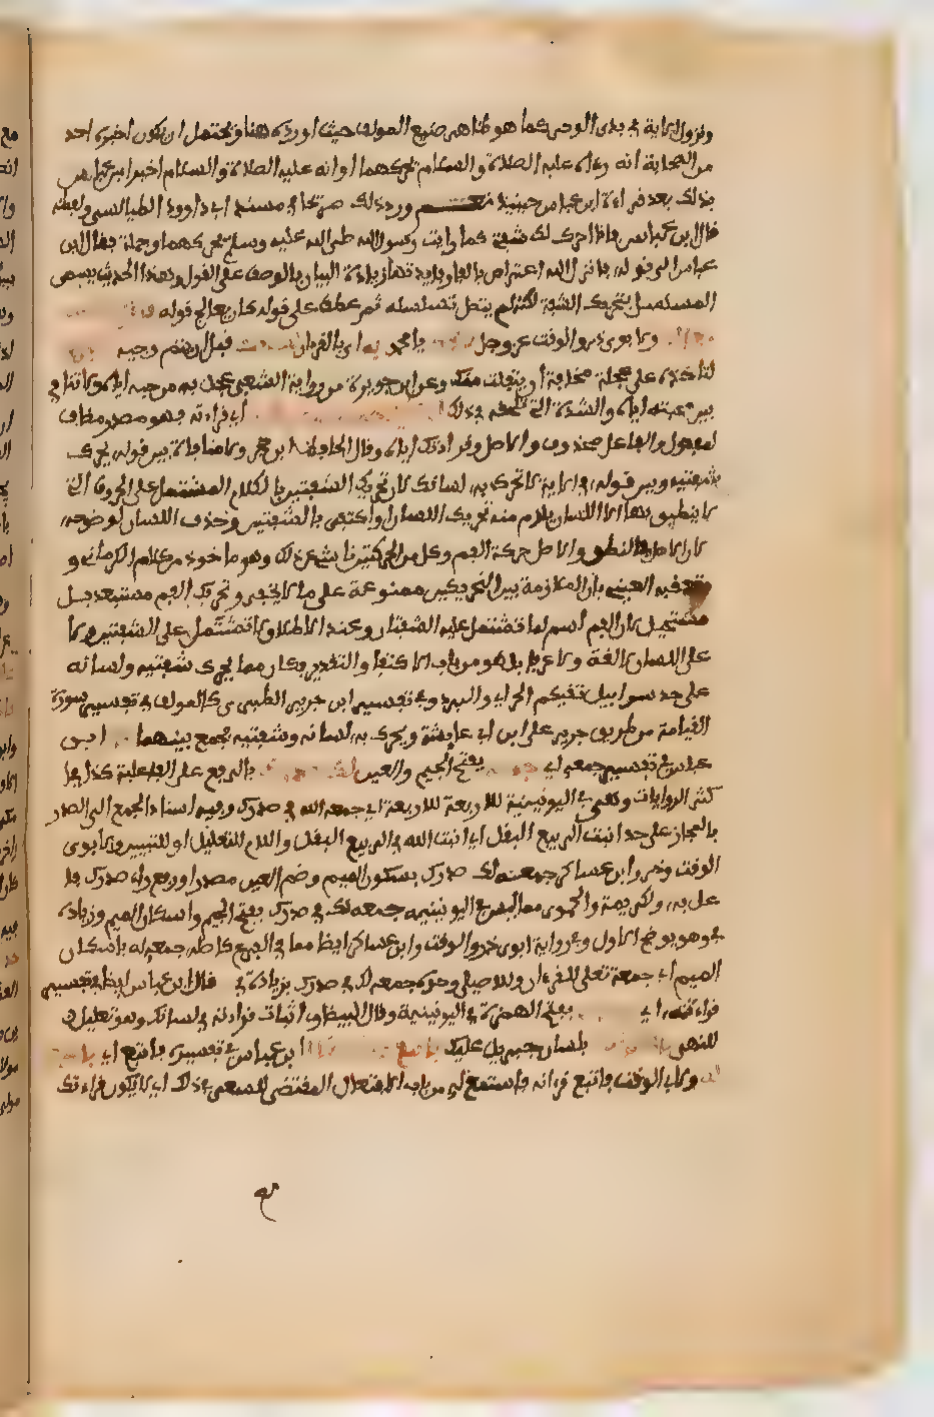 ونزول الاية في بدى الوحى كما هو ظاهر صنيع المولف حيث اورده هنا ويحتمل ان يكون اخبره احد
من الصحابة انه رءاه عليه الصلاة والسلام يحركهما او انه عليه الصلاة والسلام اخبر ابن عباس
بذلك بعد فراءه ابن عباس حينيذ نعم ورد ذلك صريحا في مسند ابي داوود الطيالسى ولفظه
قال ابن عباس فانا احرك لك شفتى كما رايت رسول الله صلى الله عليه وسلم يحركهما وجملة فقال ابن
عباس الى قوله فانزل الله اعتراض بالفاء وفايدتها زيادة البيان بالوصف على القول وهذا الحديث يسمى
المسلسل بتحريك الشفة لكنه لم يتصل تسلسله ثم عطف على قوله كان يعالج قوله
ولابوى ذر والوقت عز وجل يا محمد به اى بالقرءان قبل ان يتم وحيه
لتاخذه على عجلة مخافة ان يتفلت منك وعن ابن جرير من رواية الشعبى عجل به من حبه اياه ولا تنافى
بين محبته اياه والشدة التى تلحقه في ذلك اى قراءته فهو مصدر مضاف
لمفعول والفاعل محذوف والاصل وقراءتك اياه وقال الحافظ ابن حجر ولا منافاة بين قوله يحرك
شفتيه وبين قوله في الاية لا تحرك به لسانك لان تحريك الشفتين بالكلام المشتمل على الحروف التى
لا ينطق بها الا اللسان يلزم منه تحريك اللسان او اكتفى بالشفتين وحذف اللسان لوضوحه
لان الاصل في النطق والاصل حركة الفم وكل من الحركتين ناشئ عن ذلك وهو ماخوذ من كلام الكرمانى و
تعقبه العينى بان الملازمة بين التحريكين ممنوعة على ما لا يخفى وتحريك الفم مستبعد بل
مستحيل لان الفم اسم لما تشتمل عليه الشفتان وعند الاطلاق لا تشتمل على الشفتين ولا
على اللسان لا لغة ولا عرفا بل هو من باب الاكتفاء والتقدير فكان مما يحرك شفتيه ولسانه
على حد سرابيل تقيكم الحر اى والبرد وفى تفسير ابن جرير الطبرى كالمولف في تفسير سورة
القيامة من طريق جرير على ابن ابى عايشة ويحرك به لسانه وشفتيه فجمع بينهما ابن
عباس في تفسير جمعه اى بفتح الجيم والعين بالرفع على الفاعلية كذا في
كثر الروايات وهى في اليونينية للاربعة للاربعة اى جمعه الله في صدرك وفيه اسناد الجمع الى الصدر
بالمجاز على حد انبت الربيع البقل اى انبت الله في الربيع البقل واللام للتعليل او للتبيين ولابوى
الوقت وذر وابن عساكر جمعه لك صدرك بسكون الميم وضم العين مصدرا ورفع راء صدرك فا
عل به ولكريمة والحموى مما ليس في اليونينية جمعه لك في صدرك بفتح الجيم واسكان الميم وزيادة
في وهو يوضح الاول وفى رواية ابوى ذر والوقت وابن عساكر ايضا مما في الفرع كاصله جمعه له باسكان
الميم اى جمعه تعلى للقرءان وللاصيلى وحده جمعه لك في صدرك بزيادة في قال ابن عباس ايضا في تفسير
قراءته اى بفتح الهمزة في اليونينية وقال البيضاوى اثبات قراءته في لسانك وهو تعليل
للنهى بلسان جبريل عليك ابن عباس في تفسيره فاتبع اى
ولابى الوقت فاتبع قرءانه فاستمع له من باب الافتعال المقتضى للسعى في ذلك اى لا تكون قراءتك